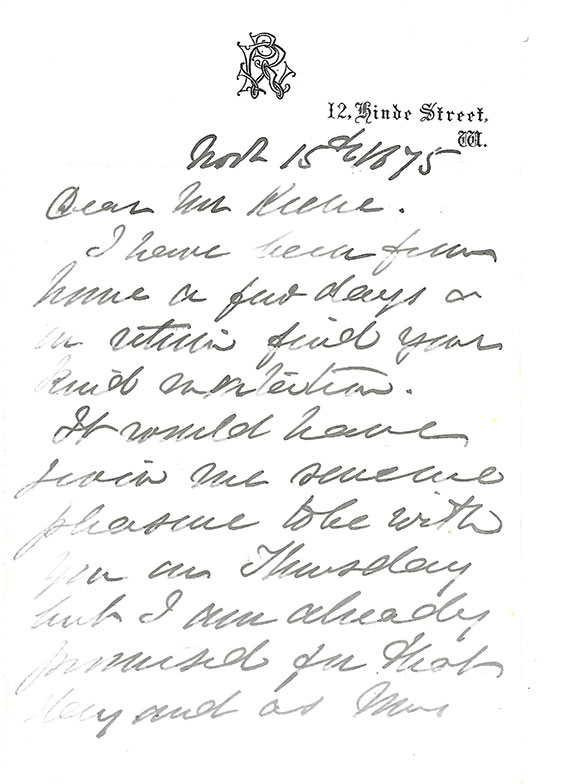 12, Hinde Street,
W.
15th 1875
Dear Mr
I have been from
home a few days &
on return find your
kind invitation.
It would have
given me sincere
pleasure to be with
you on Thursday
but I am already
promised for that
day and as Mrs